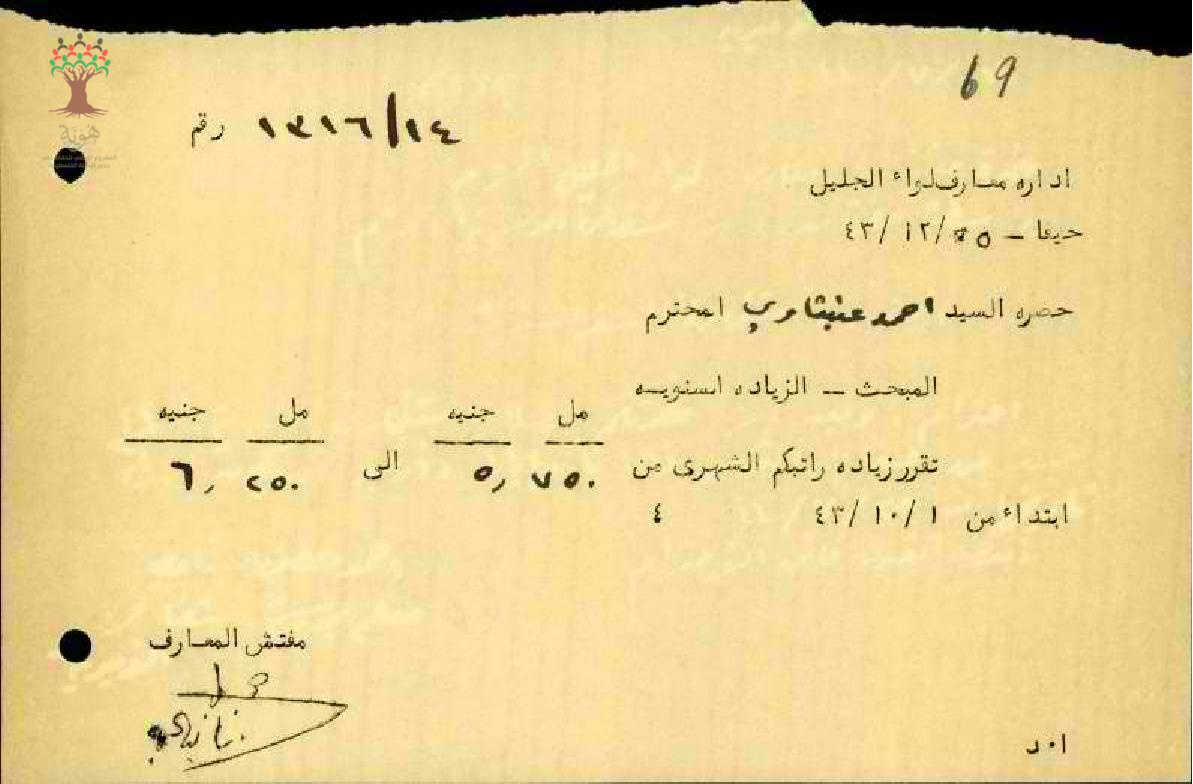 69
رقم ١٣١٦/١٤
هوية
اداره معارف لواء الجليل
حيفا - ٢٥/١٢/٤٣
حضره السيد احمد عنبتاوي المحترم
المبحث - الزياده السنويه
مل جنيه مل جنيه
تقرر زياده راتبكم الشهرى من ٧٥٠ ,٥ الى ٢٥٠ ,٦
ابتداء من ١/١٠/٤٣ ٤
مفتش المعارف
ا٠د